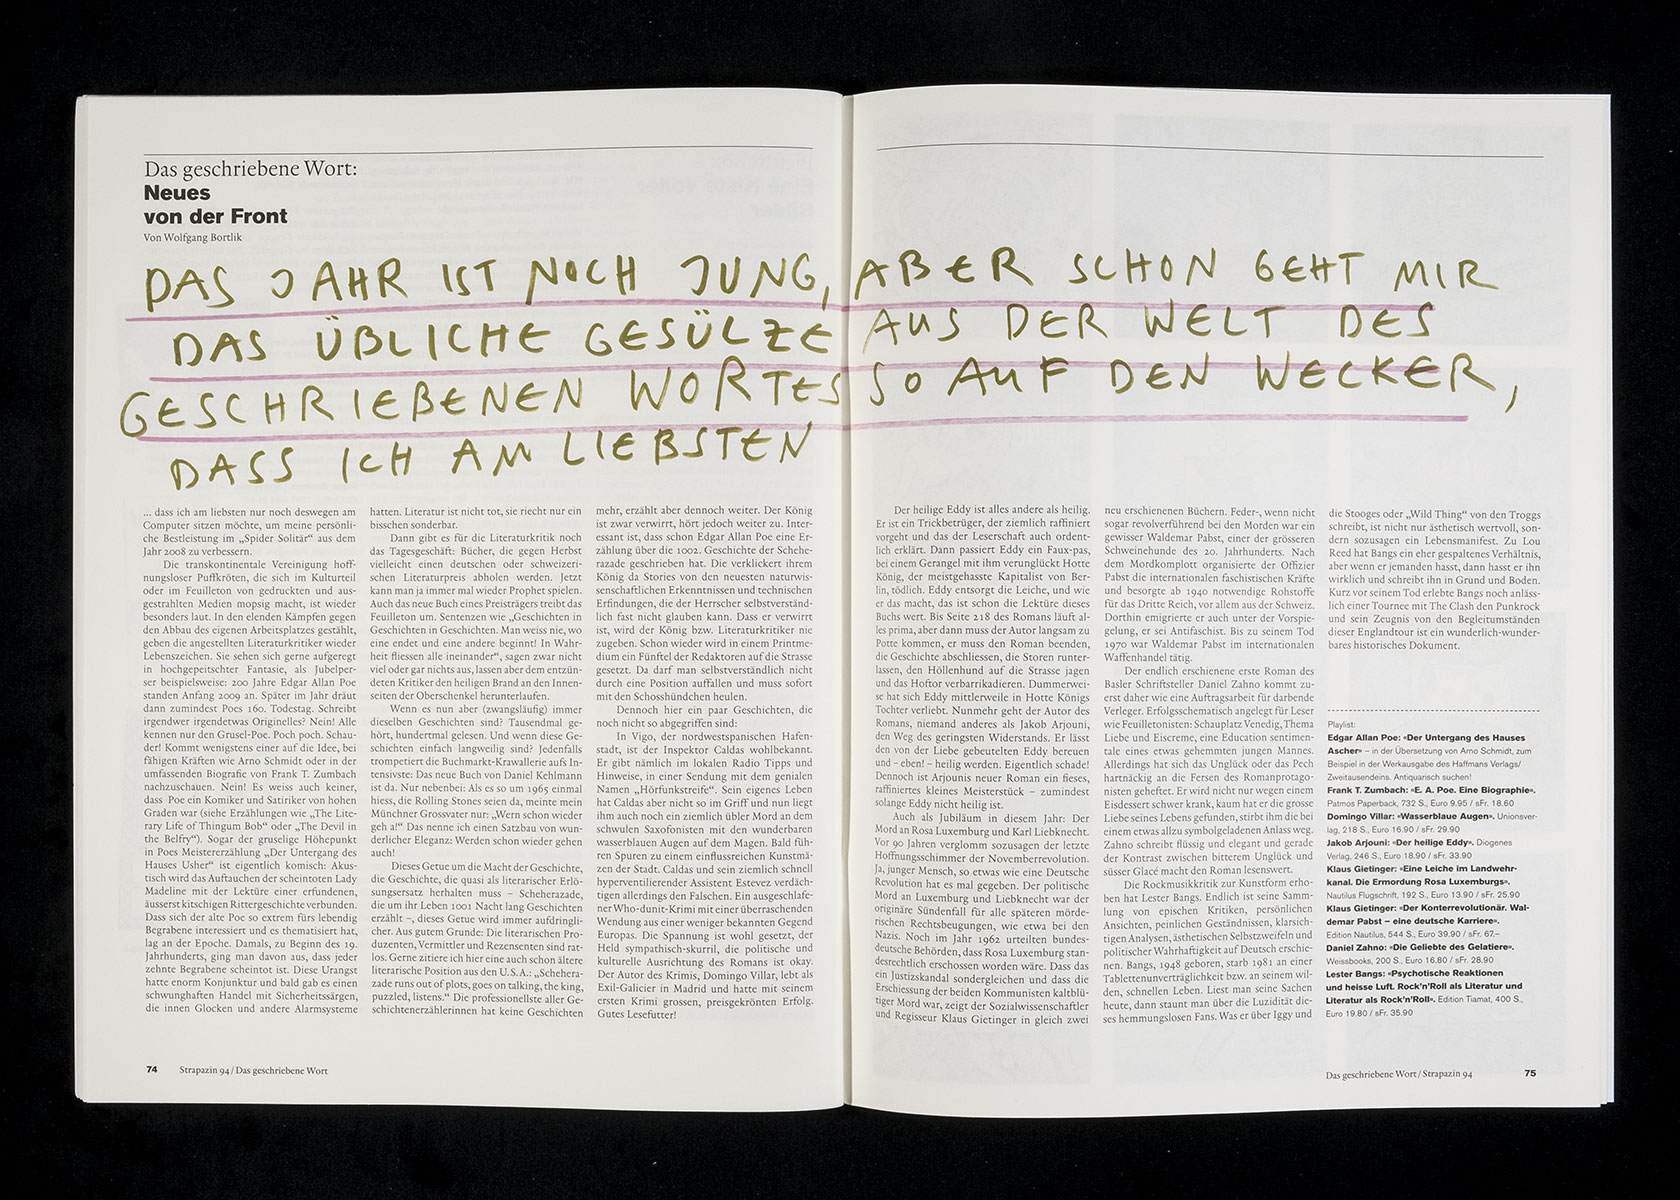 Das geschriebene Wort:
Neues
von der Front
Von Wolfgang Bortlik
DAS JAHR IST NOCH JUNG, ABER SCHON GEHT MIR
DAS ÜBLICHE GESÜLZE AUS DER WELT DES
GESCHRIEBENEN WORTES SO AUF DEN WECKER,
DASS ICH AM LIEBSTEN
... dass ich am liebsten nur noch deswegen am
Computer sitzen möchte, um meine persönli-
che Bestleistung im „Spider Solitär“ aus dem
Jahr 2008 zu verbessern.
Die transkontinentale Vereinigung hoff-
nungsloser Puffkröten, die sich im Kulturteil
oder im Feuilleton von gedruckten und aus-
gestrahlten Medien mopsig macht, ist wieder
besonders laut. In den elenden Kämpfen gegen
den Abbau des eigenen Arbeitsplatzes gestählt,
geben die angestellten Literaturkritiker wieder
Lebenszeichen. Sie sehen sich gerne aufgeregt
in hochgepeitschter Fantasie, als Jubelper-
ser beispielsweise: 200 Jahre Edgar Allan Poe
standen Anfang 2009 an. Später im Jahr dräut
dann zumindest Poes 160. Todestag. Schreibt
irgendwer irgendetwas Originelles? Nein! Alle
kennen nur den Grusel-Poe. Poch poch. Schau-
der! Kommt wenigstens einer auf die Idee, bei
fähigen Kräften wie Arno Schmidt oder in der
umfassenden Biografie von Frank T. Zumbach
nachzuschauen. Nein! Es weiss auch keiner,
dass Poe ein Komiker und Satiriker von hohen
Graden war (siehe Erzählungen wie „The Lite-
rary Life of Thingum Bob“ oder „The Devil in
the Belfry“). Sogar der gruselige Höhepunkt
in Poes Meistererzählung „Der Untergang des
Hauses Usher“ ist eigentlich komisch: Akus-
tisch wird das Auftauchen der scheintoten Lady
Madeline mit der Lektüre einer erfundenen,
äusserst kitschigen Rittergeschichte verbunden.
Dass sich der alte Poe so extrem fürs lebendig
Begrabene interessiert und es thematisiert hat,
lag an der Epoche. Damals, zu Beginn des 19.
Jahrhunderts, ging man davon aus, dass jeder
zehnte Begrabene scheintot ist. Diese Urangst
hatte enorm Konjunktur und bald gab es einen
schwunghaften Handel mit Sicherheitssärgen,
die innen Glocken und andere Alarmsysteme
hatten. Literatur ist nicht tot, sie riecht nur ein
bisschen sonderbar.
Dann gibt es für die Literaturkritik noch
das Tagesgeschäft: Bücher, die gegen Herbst
vielleicht einen deutschen oder schweizeri-
schen Literaturpreis abholen werden. Jetzt
kann man ja immer mal wieder Prophet spielen.
Auch das neue Buch eines Preisträgers treibt das
Feuilleton um. Sentenzen wie „Geschichten in
Geschichten in Geschichten. Man weiss nie, wo
eine endet und eine andere beginnt! In Wahr-
heit fliessen alle ineinander“, sagen zwar nicht
viel oder gar nichts aus, lassen aber dem entzün-
deten Kritiker den heiligen Brand an den Innen-
seiten der Oberschenkel herunterlaufen.
Wenn es nun aber (zwangsläufig) immer
dieselben Geschichten sind? Tausendmal ge-
hört, hundertmal gelesen. Und wenn diese Ge-
schichten einfach langweilig sind? Jedenfalls
trompetiert die Buchmarkt-Krawallerie aufs In-
tensivste: Das neue Buch von Daniel Kehlmann
ist da. Nur nebenbei: Als es so um 1965 einmal
hiess, die Rolling Stones seien da, meinte mein
Münchner Grossvater nur: „Wern schon wieder
geh a!“ Das nenne ich einen Satzbau von wun-
derlicher Eleganz: Werden schon wieder gehen
auch!
Dieses Getue um die Macht der Geschichte,
die Geschichte, die quasi als literarischer Erlö-
sungsersatz herhalten muss – Scheherazade,
die um ihr Leben 1001 Nacht lang Geschichten
erzählt –, dieses Getue wird immer aufdringli-
cher. Aus gutem Grunde: Die literarischen Pro-
duzenten, Vermittler und Rezensenten sind rat-
los. Gerne zitiere ich hier eine auch schon ältere
literarische Position aus den U.S.A.: „Schehera-
zade runs out of plots, goes on talking, the king,
puzzled, listens.“ Die professionellste aller Ge-
schichtenerzählerinnen hat keine Geschichten
mehr, erzählt aber dennoch weiter. Der König
ist zwar verwirrt, hört jedoch weiter zu. Inter-
essant ist, dass schon Edgar Allan Poe eine Er-
zählung über die 1002. Geschichte der Schehe-
razade geschrieben hat. Die verklickert ihrem
König da Stories von den neuesten naturwis-
senschaftlichen Erkenntnissen und technischen
Erfindungen, die der Herrscher selbstverständ-
lich fast nicht glauben kann. Dass er verwirrt
ist, wird der König bzw. Literaturkritiker nie
zugeben. Schon wieder wird in einem Printme-
dium ein Fünftel der Redaktoren auf die Strasse
gesetzt. Da darf man selbstverständlich nicht
durch eine Position auffallen und muss sofort
mit den Schosshündchen heulen.
Dennoch hier ein paar Geschichten, die
noch nicht so abgegriffen sind:
In Vigo, der nordwestspanischen Hafen-
stadt, ist der Inspektor Caldas wohlbekannt.
Er gibt nämlich im lokalen Radio Tipps und
Hinweise, in einer Sendung mit dem genialen
Namen „Hörfunkstreife“. Sein eigenes Leben
hat Caldas aber nicht so im Griff und nun liegt
ihm auch noch ein ziemlich übler Mord an dem
schwulen Saxofonisten mit den wunderbaren
wasserblauen Augen auf dem Magen. Bald füh-
ren Spuren zu einem einflussreichen Kunstmä-
zen der Stadt. Caldas und sein ziemlich schnell
hyperventilierender Assistent Estevez verdäch-
tigen allerdings den Falschen. Ein ausgeschlafe-
ner Who-dunit-Krimi mit einer überraschenden
Wendung aus einer weniger bekannten Gegend
Europas. Die Spannung ist wohl gesetzt, der
Held sympathisch-skurril, die politische und
kulturelle Ausrichtung des Romans ist okay.
Der Autor des Krimis, Domingo Villar, lebt als
Exil-Galicier in Madrid und hatte mit seinem
ersten Krimi grossen, preisgekrönten Erfolg.
Gutes Lesefutter!
Der heilige Eddy ist alles andere als heilig.
Er ist ein Trickbetrüger, der ziemlich raffiniert
vorgeht und das der Leserschaft auch ordent-
lich erklärt. Dann passiert Eddy ein Faux-pas,
bei einem Gerangel mit ihm verunglückt Hotte
König, der meistgehasste Kapitalist von Ber-
lin, tödlich. Eddy entsorgt die Leiche, und wie
er das macht, das ist schon die Lektüre dieses
Buchs wert. Bis Seite 218 des Romans läuft al-
les prima, aber dann muss der Autor langsam zu
Potte kommen, er muss den Roman beenden,
die Geschichte abschliessen, die Storen runter-
lassen, den Höllenhund auf die Strasse jagen
und das Hoftor verbarrikadieren. Dummerwei-
se hat sich Eddy mittlerweile in Hotte Königs
Tochter verliebt. Nunmehr geht der Autor des
Romans, niemand anderes als Jakob Arjouni,
den Weg des geringsten Widerstands. Er lässt
den von der Liebe gebeutelten Eddy bereuen
und – eben! – heilig werden. Eigentlich schade!
Dennoch ist Arjounis neuer Roman ein fieses,
raffiniertes kleines Meisterstück – zumindest
solange Eddy nicht heilig ist.
Auch als Jubiläum in diesem Jahr: Der
Mord an Rosa Luxemburg und Karl Liebknecht.
Vor 90 Jahren verglomm sozusagen der letzte
Hoffnungsschimmer der Novemberrevolution.
Ja, junger Mensch, so etwas wie eine Deutsche
Revolution hat es mal gegeben. Der politische
Mord an Luxemburg und Liebknecht war der
originäre Sündenfall für alle späteren mörde-
rischen Rechtsbeugungen, wie etwa bei den
Nazis. Noch im Jahr 1962 urteilten bundes-
deutsche Behörden, dass Rosa Luxemburg stan-
desrechtlich erschossen worden wäre. Dass das
ein Justizskandal sondergleichen und dass die
Erschiessung der beiden Kommunisten kaltblü-
tiger Mord war, zeigt der Sozialwissenschaftler
und Regisseur Klaus Gietinger in gleich zwei
neu erschienenen Büchern. Feder-, wenn nicht
sogar revolverführend bei den Morden war ein
gewisser Waldemar Pabst, einer der grösseren
Schweinehunde des 20. Jahrhunderts. Nach
dem Mordkomplott organisierte der Offizier
Pabst die internationalen faschistischen Kräfte
und besorgte ab 1940 notwendige Rohstoffe
für das Dritte Reich, vor allem aus der Schweiz.
Dorthin emigrierte er auch unter der Vorspie-
gelung, er sei Antifaschist. Bis zu seinem Tod
1970 war Waldemar Pabst im internationalen
Waffenhandel tätig.
Der endlich erschienene erste Roman des
Basler Schriftsteller Daniel Zahno kommt zu-
erst daher wie eine Auftragsarbeit für darbende
Verleger. Erfolgsschematisch angelegt für Leser
wie Feuilletonisten: Schauplatz Venedig, Thema
Liebe und Eiscreme, eine Education sentimen-
tale eines etwas gehemmten jungen Mannes.
Allerdings hat sich das Unglück oder das Pech
hartnäckig an die Fersen des Romanprotago-
nisten geheftet. Er wird nicht nur wegen einem
Eisdessert schwer krank, kaum hat er die grosse
Liebe seines Lebens gefunden, stirbt ihm die bei
einem etwas allzu symbolgeladenen Anlass weg.
Zahno schreibt flüssig und elegant und gerade
der Kontrast zwischen bitterem Unglück und
süsser Glacé macht den Roman lesenswert.
Die Rockmusikkritik zur Kunstform erho-
ben hat Lester Bangs. Endlich ist seine Samm-
lung von epischen Kritiken, persönlichen
Ansichten, peinlichen Geständnissen, klarsich-
tigen Analysen, ästhetischen Selbstzweifeln und
politischer Wahrhaftigkeit auf Deutsch erschie-
nen. Bangs, 1948 geboren, starb 1981 an einer
Tablettenunverträglichkeit bzw. an seinem wil-
den, schnellen Leben. Liest man seine Sachen
heute, dann staunt man über die Luzidität die-
ses hemmungslosen Fans. Was er über Iggy und
die Stooges oder „Wild Thing“ von den Troggs
schreibt, ist nicht nur ästhetisch wertvoll, son-
dern sozusagen ein Lebensmanifest. Zu Lou
Reed hat Bangs ein eher gespaltenes Verhältnis,
aber wenn er jemanden hasst, dann hasst er ihn
wirklich und schreibt ihn in Grund und Boden.
Kurz vor seinem Tod erlebte Bangs noch anläss-
lich einer Tournee mit The Clash den Punkrock
und sein Zeugnis von den Begleitumständen
dieser Englandtour ist ein wunderlich-wunder-
bares historisches Dokument.
Playlist:
Edgar Allan Poe: «Der Untergang des Hauses
Ascher» – in der Übersetzung von Arno Schmidt, zum
Beispiel in der Werkausgabe des Haffmans Verlags/
Zweitausendeins. Antiquarisch suchen!
Frank T. Zumbach: «E. A. Poe. Eine Biographie».
Patmos Paperback, 732 S., Euro 9.95 / sFr. 18.60
Domingo Villar: «Wasserblaue Augen». Unionsver-
lag, 218 S., Euro 16.90 / sFr. 29.90
Jakob Arjouni: «Der heilige Eddy». Diogenes
Verlag, 246 S., Euro 18.90 / sFr. 33.90
Klaus Gietinger: «Eine Leiche im Landwehr-
kanal. Die Ermordung Rosa Luxemburgs».
Nautilus Flugschrift, 192 S., Euro 13.90 / sFr. 25.90
Klaus Gietinger: «Der Konterrevolutionär. Wal-
demar Pabst – eine deutsche Karriere».
Edition Nautilus, 544 S., Euro 39.90 / sFr. 67.–
Daniel Zahno: «Die Geliebte des Gelatiere».
Weissbooks, 200 S., Euro 16.80 / sFr. 28.90
Lester Bangs: «Psychotische Reaktionen
und heisse Luft. Rock’n’Roll als Literatur und
Literatur als Rock’n’Roll». Edition Tiamat, 400 S.,
Euro 19.80 / sFr. 35.90
74 Strapazin 94 / Das geschriebene Wort
Das geschriebene Wort / Strapazin 94 75